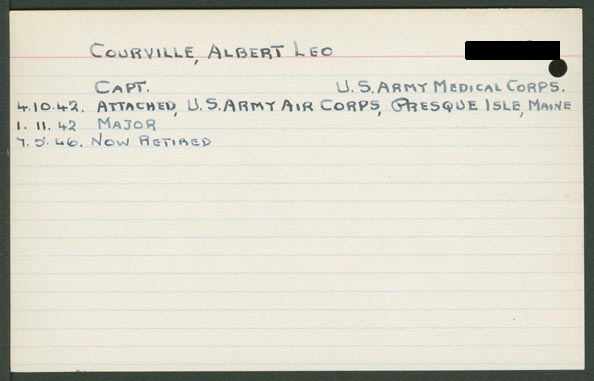 COURVILLE, ALBERT LEO
CAPT. U.S. ARMY MEDICAL CORPS.
4.10.42. ATTACHED, U.S. ARMY AIR CORPS, PRESQUE ISLE, MAINE
1.11.42 MAJOR
7.5.46. NOW RETIRED